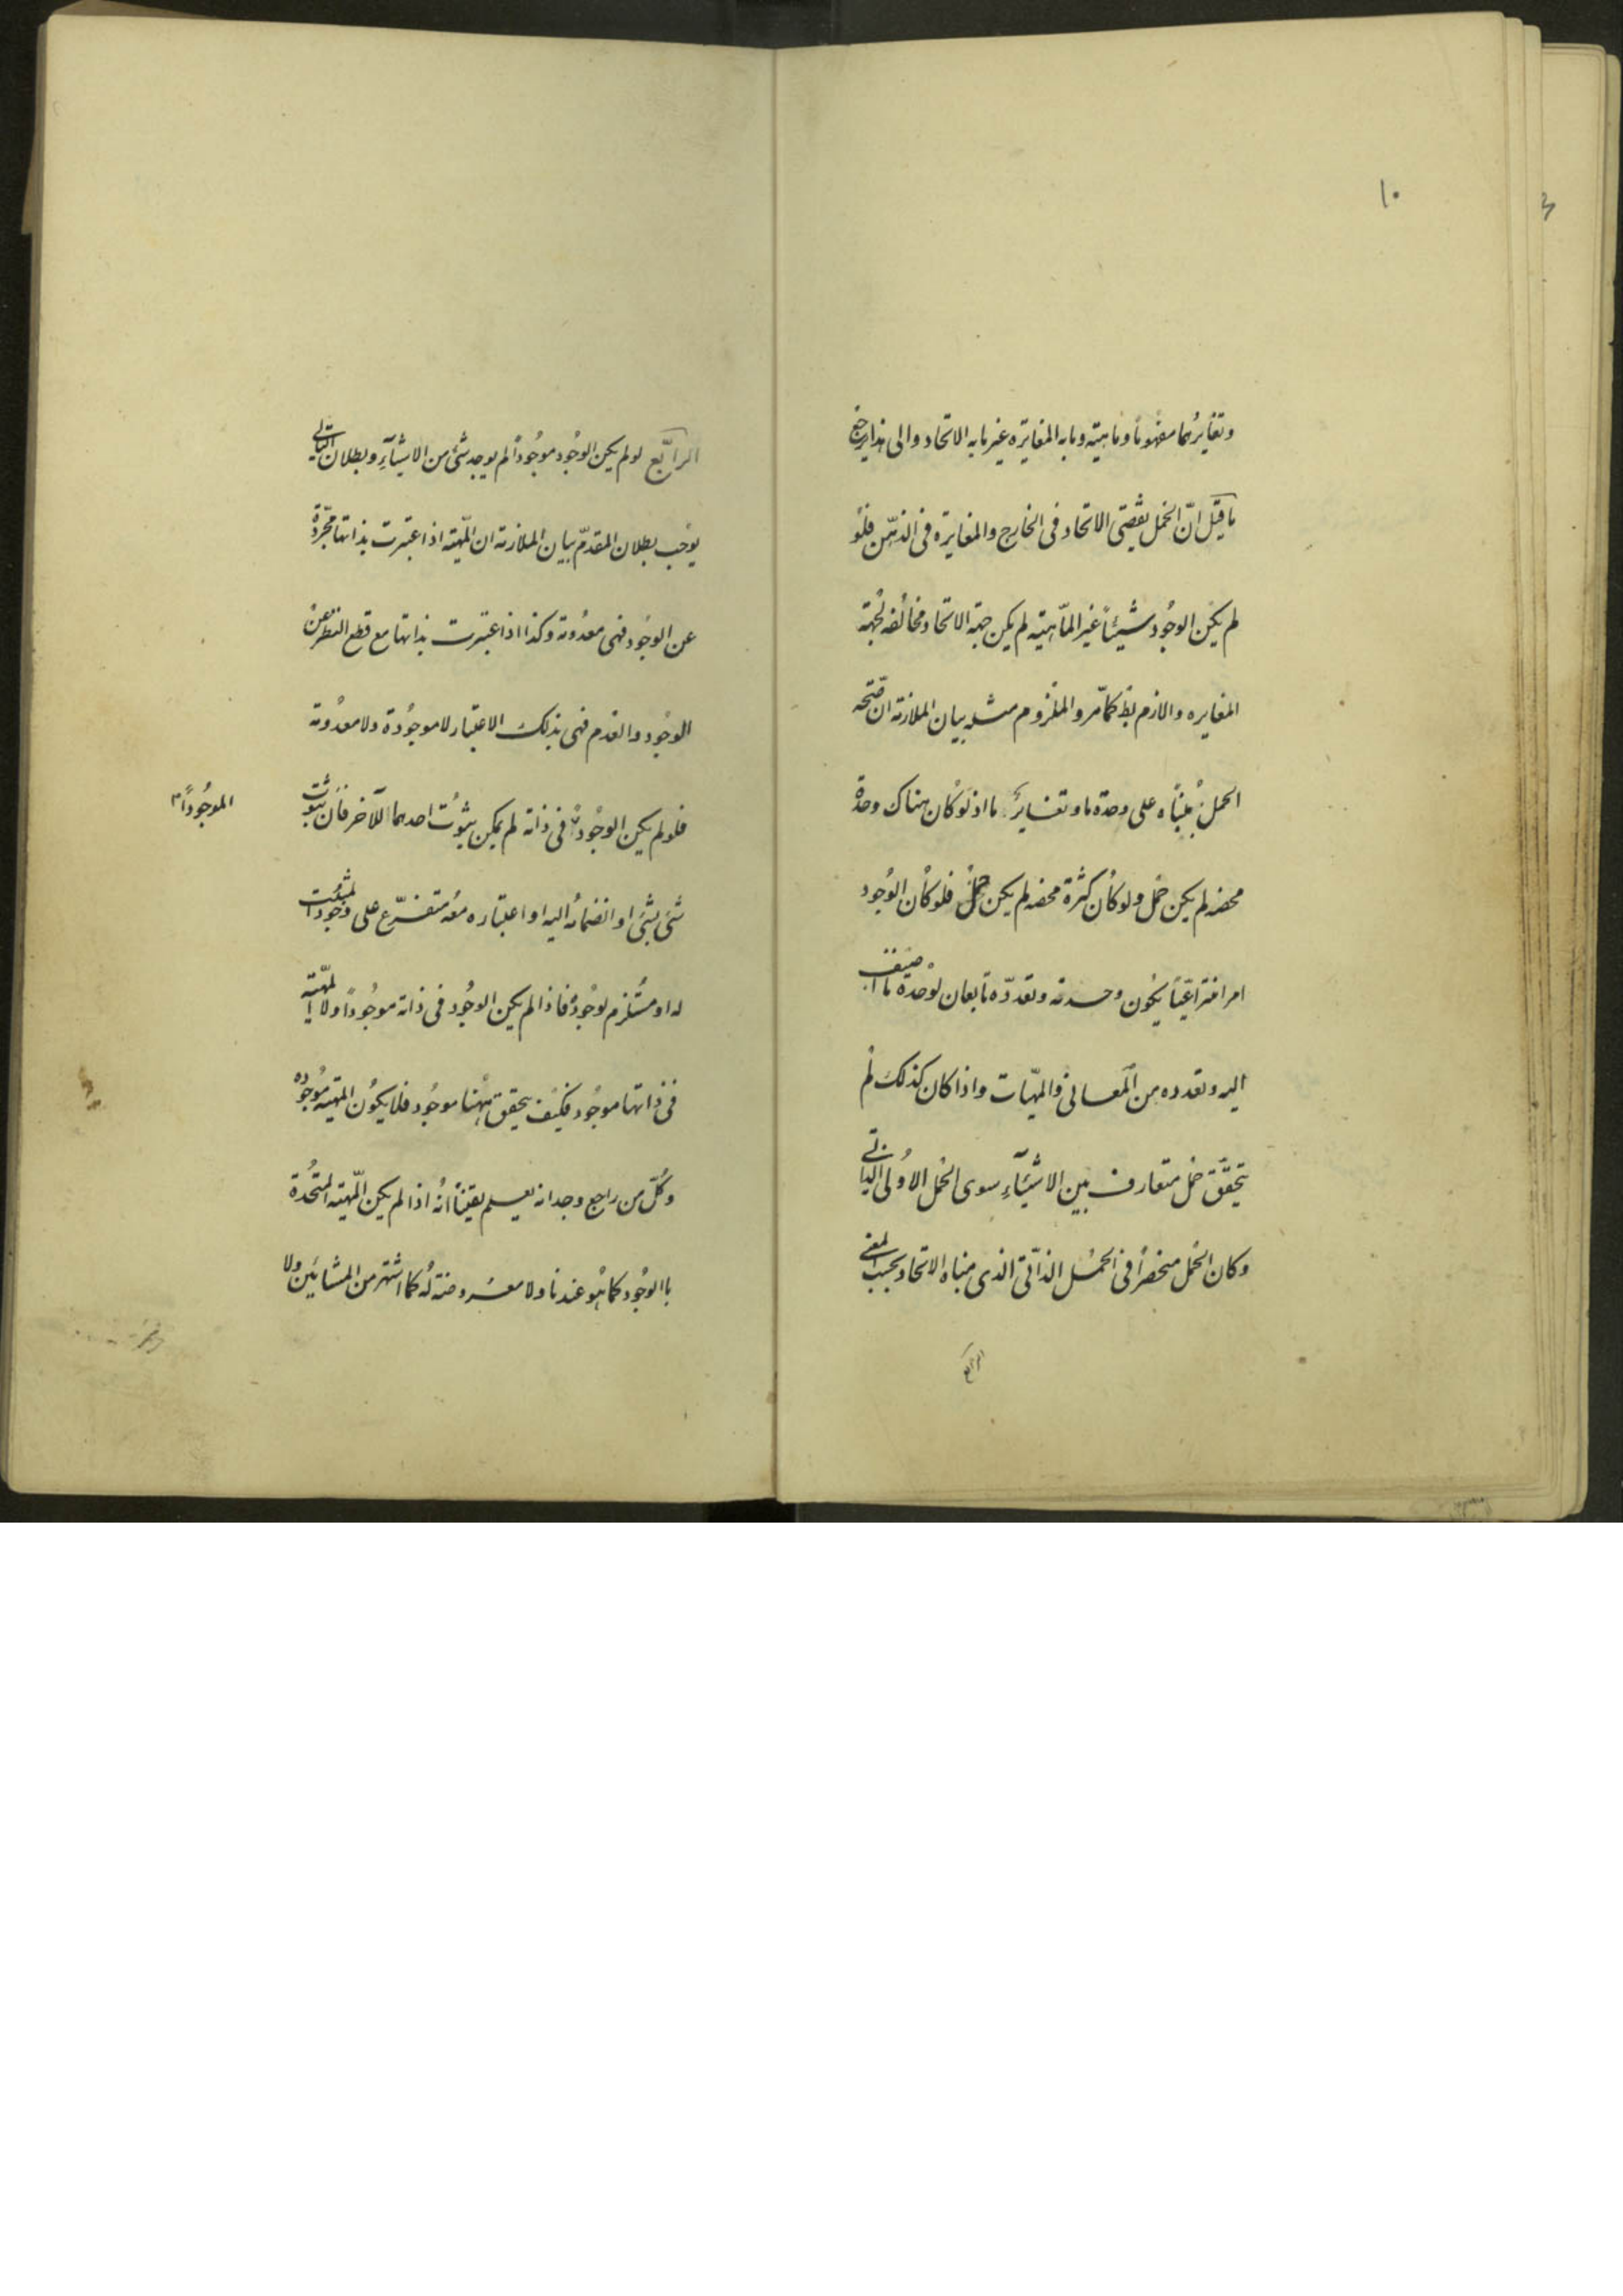 ١٠
وتغايرهما مفهوما وماهيته وما به المغايرة غير ما به الاتحاد والى هذا يرجع
ما قيل ان الحمل يقتضى الاتحاد فى الخارج والمغايرة فى الذهن فلو
لم يكن الوجود شيئاً غير الماهيته لم يكن جهة الاتحاد مخالفه لجهة
المغايره والازم بط كما مر والملزوم مثله بيان الملازمة ان صحه
الحمل مبناه على وحدة ما وتغاير ما اذ لو كان هناك وحدة
محضه لم يكن حمل ولو كان كثرة محضه لم يكن حمل فلو كان الوجود
امرا انتزاعياً يكون وحدته وتعدده تابعان لوحدة ما اضيف
اليه وتعدده من المعانى والمهيات واذا كان كذلك لم
يتحقق حمل متعارف بين الاشياء سوى الحمل الاولى الذاتى
وكان الحمل منحصراً فى الحمل الذاتى الذى مبناه الاتحاد بحسب المعنى
الرابع
الرابع لو لم يكن الوجود موجوداً لم يوجد شئ من الاشياء وبطلان التالى
يوجب بطلان المقدم بيان الملازمة ان المهيته اذا اعتبرت بذاتها مجردة
عن الوجود فهى معدومة وكذا اذا اعتبرت بذاتها مع قطع النظر عن
الوجود والعدم فهى بذلك الاعتبار لا موجودة ولا معدومة
فلو لم يكن الوجود فى ذاته لم يكن ثبوت احدهما للآخر فان ثبوت
الموجوداً
شئ بشئ او انضمامه اليه او اعتباره معه متفرع على وجود المثبت
له او مستلزم لوجوده فاذا لم يكن الوجود فى ذاته موجوداً ولا المهيته
فى ذاتها موجود فكيف يتحقق ههنا موجود فلا يكون المهيته موجوده
وكل من راجع وجدانه يعلم يقيناً انه اذا لم يكن المهيته المتحدة
باالوجود كما هو عندنا ولا معروضته له كما اشتهر من المشائين ولا